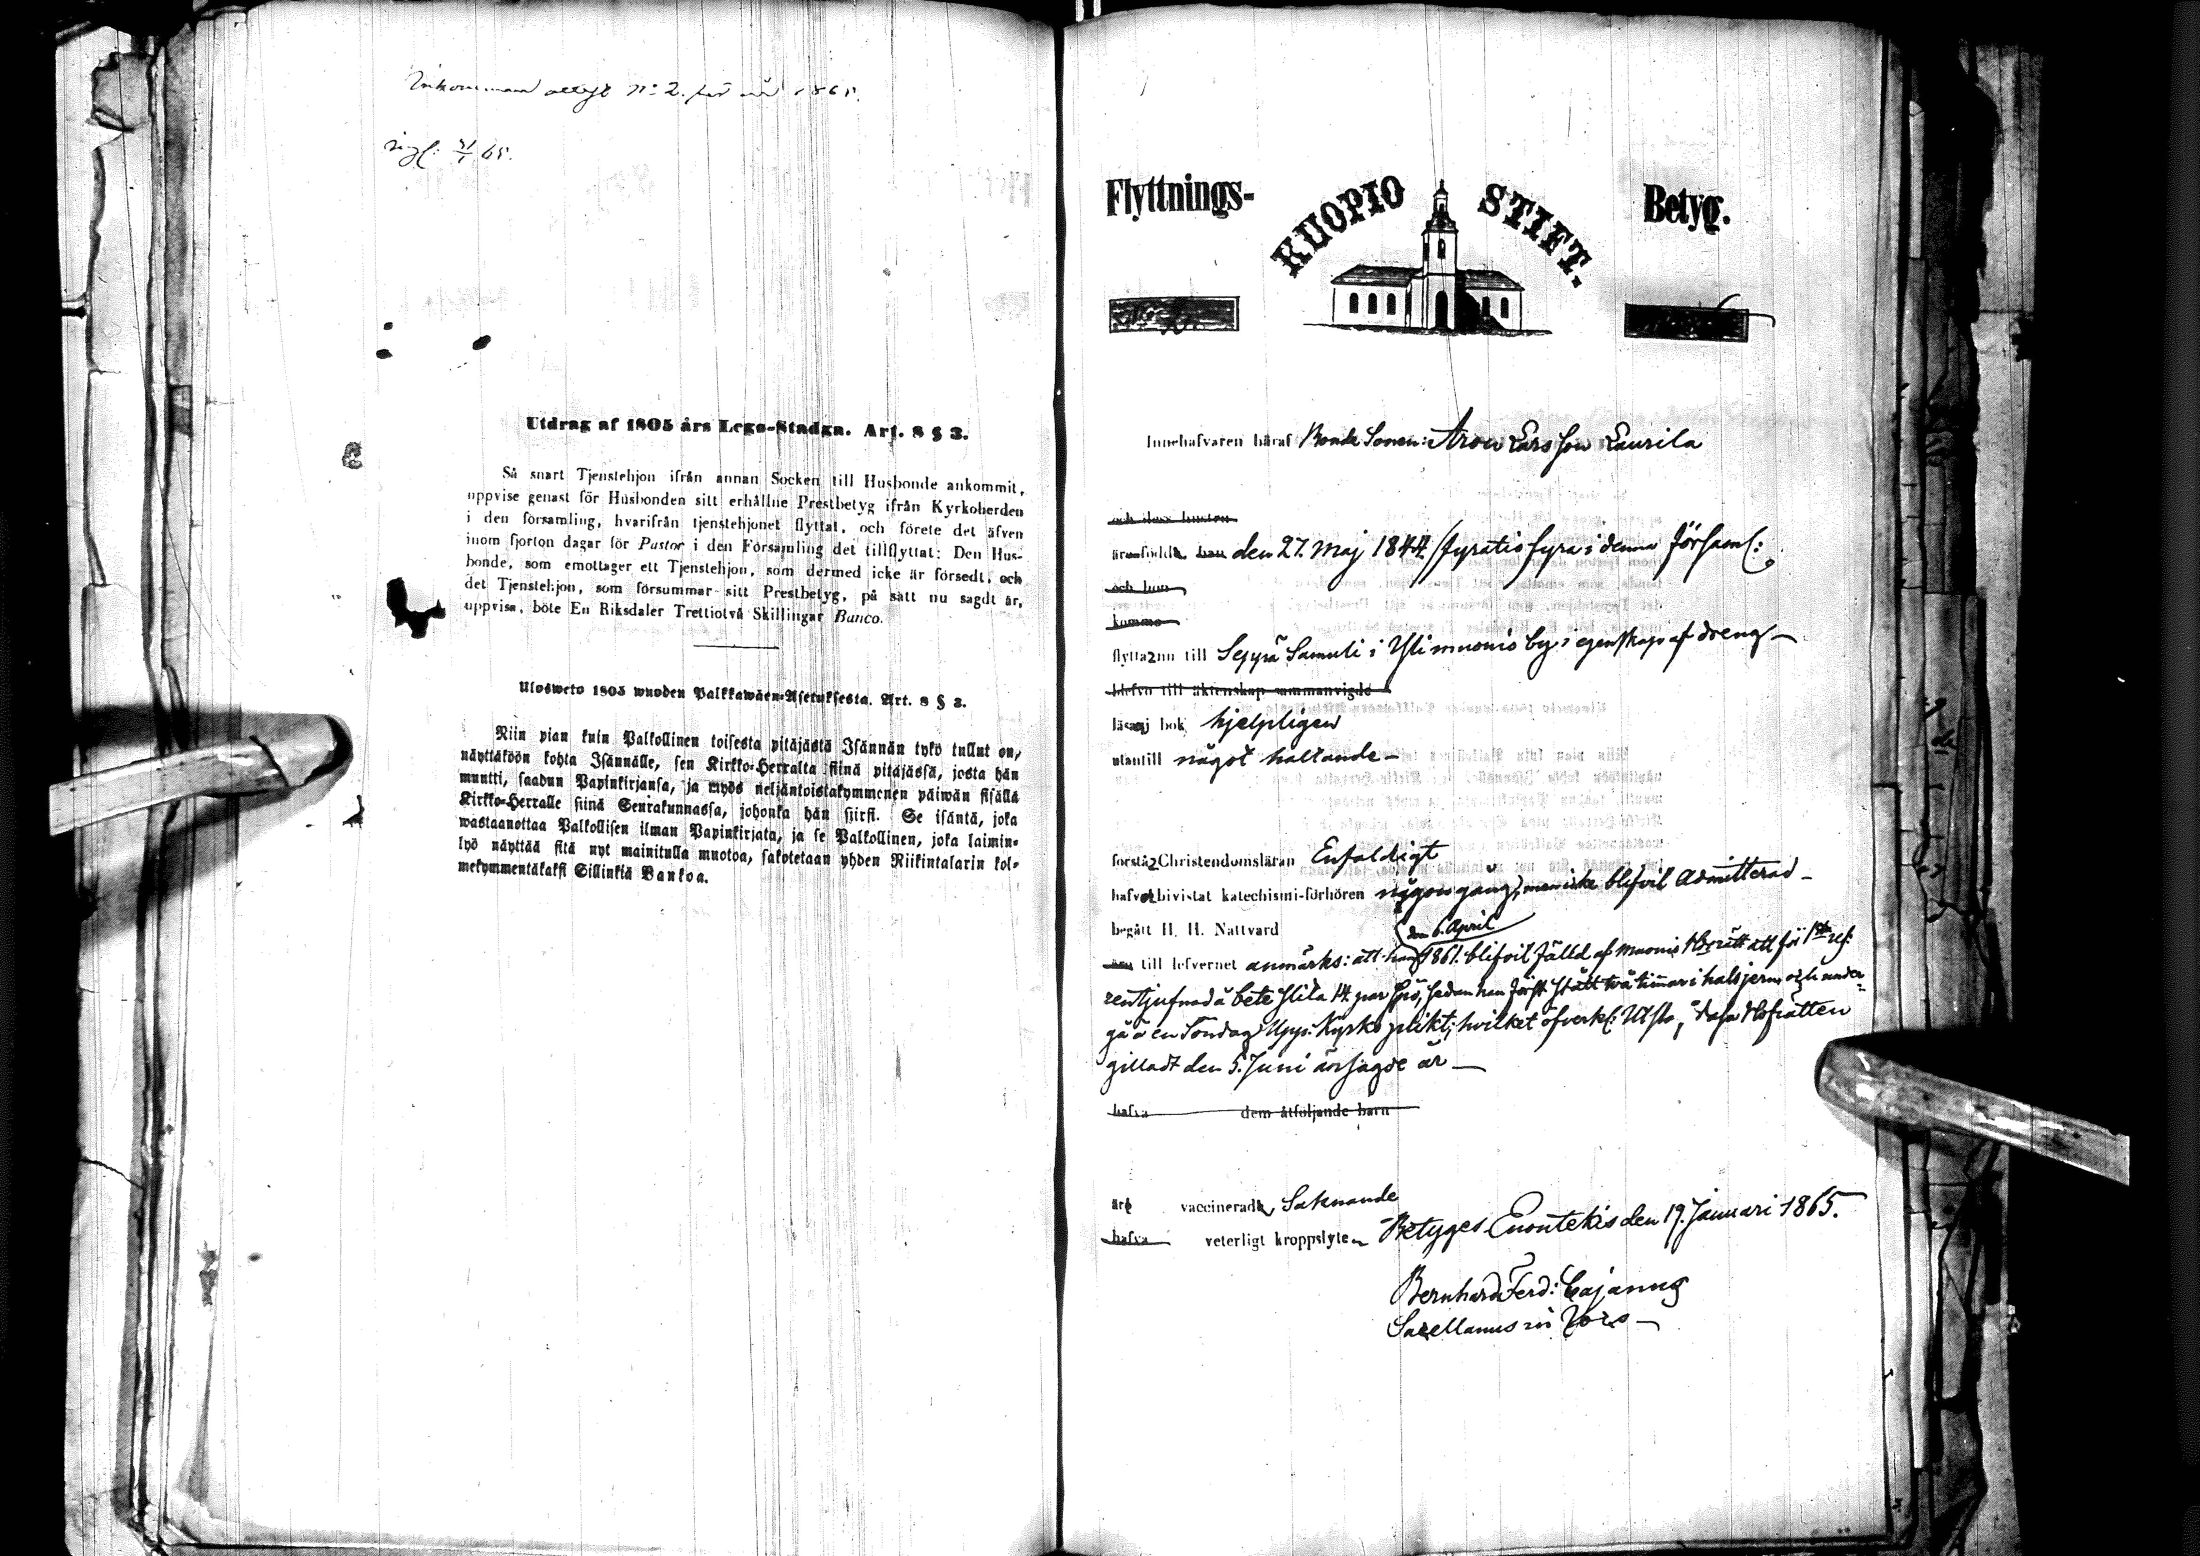 Inkommand attest No 2. för år 1865.
ingf: 31/1 65.
Utdrag af 1805 års Lego-Stadga. Art. 8 § 3.
Så snart Tjenstehjon ifrån annan Socken till Husbonde ankommit,
uppvise genast för Husbonden sitt erhållne Prestbetyg ifrån Kyrkoherden
i den församling, hvarifrån tjenstehjonet flyttat, och förete det äfven
inom fjorton dagar för Pastor i den Församling det tillflyttat: Den Hus-
bonde, som emottager ett Tjenstehjon, som dermed icke är försedt, och
det Tjenstehjon, som försummar sitt Prestbetyg, på sätt nu sagdt är,
uppvisa, böte En Riksdaler Trettiotvå Skillingar Banco.
Ulosweto 1805 wuoden Palkkawäen-Asetuksesta. Art. 8 § 3.
Niin pian kuin Palkollinen toisesta pitäjästä Isännän tykö tullut on,
näyttäköön kohta Isännälle, sen Kirkko-Herralta siinä pitäjässä, josta hän
muutti, saadun Papinkirjansa, ja myös neljäntoistakymmenen päiwän sisällä
Kirkko-Herralle siinä Seurakunnassa, johonka hän siirsi. Se isäntä, joka
wastaanottaa Palkollisen ilman Papinkirjata, ja se Palkollinen, joka laimin-
lyö näyttää sitä nyt mainitulla muotoa, sakotetaan yhden Riikintalarin kol-
mekymmentäkaksi Sillinkiä Bankoa.
Flyttnings- KUOPIO STIFT. Betyg.
Innehafvaren häraf Bonde Sonen: Aron Lars Son Laurila
och dess hustru
äro födde, han den 27. Maj 1844 /fyratio fyra i denna Församl:
och hon
komme
flytta nu till Seppä Samuli i Ylimuonio by i egenskap af dreng
blefvo till äktenskap sammanvigde
läsa i bok hjelpligen
utantill något haltande
förstå Christendomsläran Enfaldigt
hafva bivistat katechismi-förhören någon gång, men icke blifvit Admitterad
begått H. H. Nattvard
den 6. April
äro till lefvernet anmärks: att han 1861. blifvit fälld af Muonio Hrätt att för 1sta res:
rentjufnad å bete slita 14. par spö, sedan han först stått två timmar i halsjern och under-
gå å en Söndag Upp: Kyrko plikt; hvilket öfverkl: Utslag, Vasa Hofrätten
gilladt den 5. Juni årsagde år
hafva dem åtföljande barn
äro vaccinerade, Saknande
hafva veterligt kroppslyte
Betyges Enontekis den 19. Januari 1865.
Bernhard Ferd: Cajanus
Sacellanus in loco